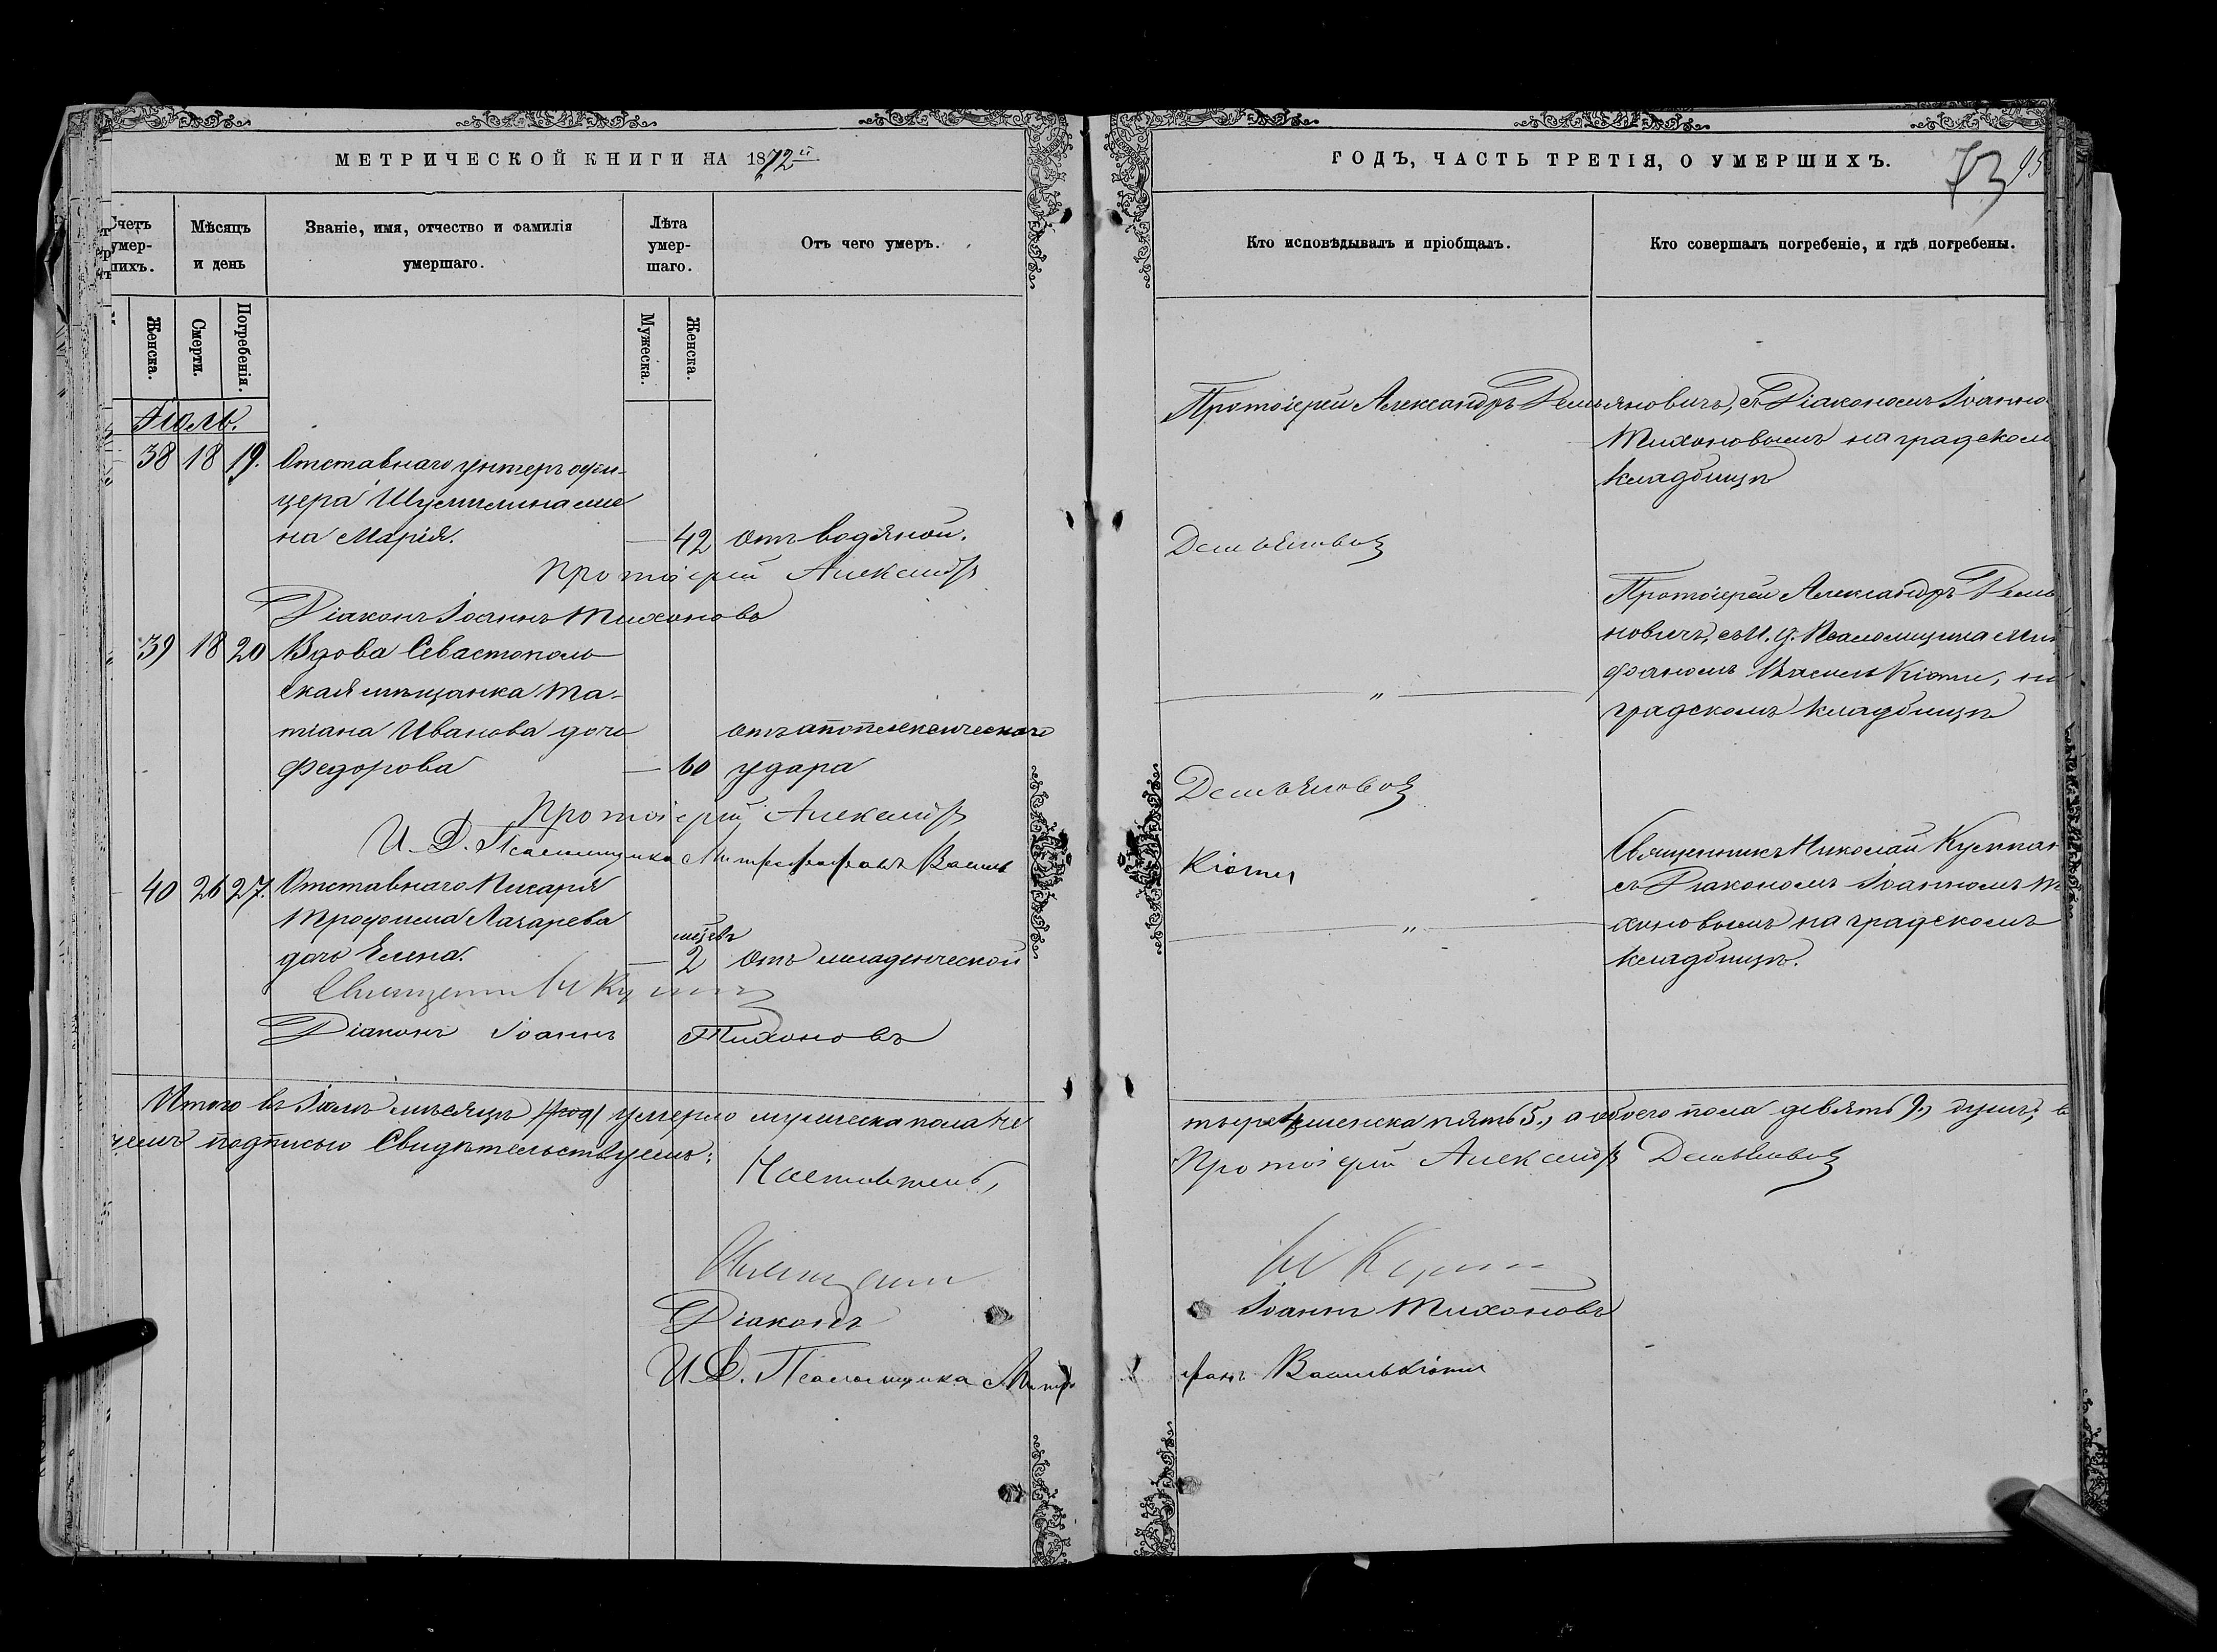 МЕТРИЧЕСКОЙ КНИГИ НА 1872й
Счетъ умер-шихъ.
Мѣсяцъ и день
Званіе, имя, отчество и фамилія умершаго.
Лѣта умер-шаго.
Отъ чего умеръ.
Женска.
Смерти.
Погребенія.
Мужеска.
Женска.
Іюль.
38 18 19. Отставнаго унтеръ офи-
цера Шумилина же
на Марія. — 42 отъ водяной.
Протоіерей Александръ
Діаконъ Іоаннъ Тихоновъ
39 18 20 Вдова Севастополь
ская мѣщанка Та-
тіана Иванова дочь
отъ апоплексическаго
Федорова — 60 удара
Протоіерей Александръ
И. Д. Псаломщика Митрофанъ Василь
40 26 27. Отставнаго Писаря
Трофима Лазарева
мѣсяцъ
дочь Елена. — 2 отъ младенческой
Священникъ Н
Діаконъ Іоаннъ Тихоновъ
Итого въ Іюлѣ мѣсяцѣ умерло мужеска пола че
чемъ подписью Свидѣтельствуемъ:
Настоятель,
Священникъ
Діаконъ
И. Д. Псаломщика Митро
ГОДЪ, ЧАСТЬ ТРЕТІЯ, О УМЕРШИХЪ.
73 95
Кто исповѣдывалъ и пріобщалъ.
Кто совершалъ погребеніе, и гдѣ погребены.
Протоіерей Александръ Демьяновичъ, съ Діакономъ Іоанно
Тихоновымъ на градском
кладбищѣ
Демьяновичъ
Протоіерей Александръ Демья
новичъ, съ И. д. Псаломщика Мит
фаномъ Василькіоти, на
градскомъ кладбищѣ
"
Демьяновичъ
Кіоти
Священникъ Николай
съ Діакономъ Іоанномъ Ти
хоновымъ на градскомъ
кладбищѣ.
"
тыре 4, женска пять 5., а обоего пола девять 9., душъ; въ
Протоіерей Александръ Демьяновичъ
Н
Іоаннъ Тихоновъ
фанъ Василькіоти